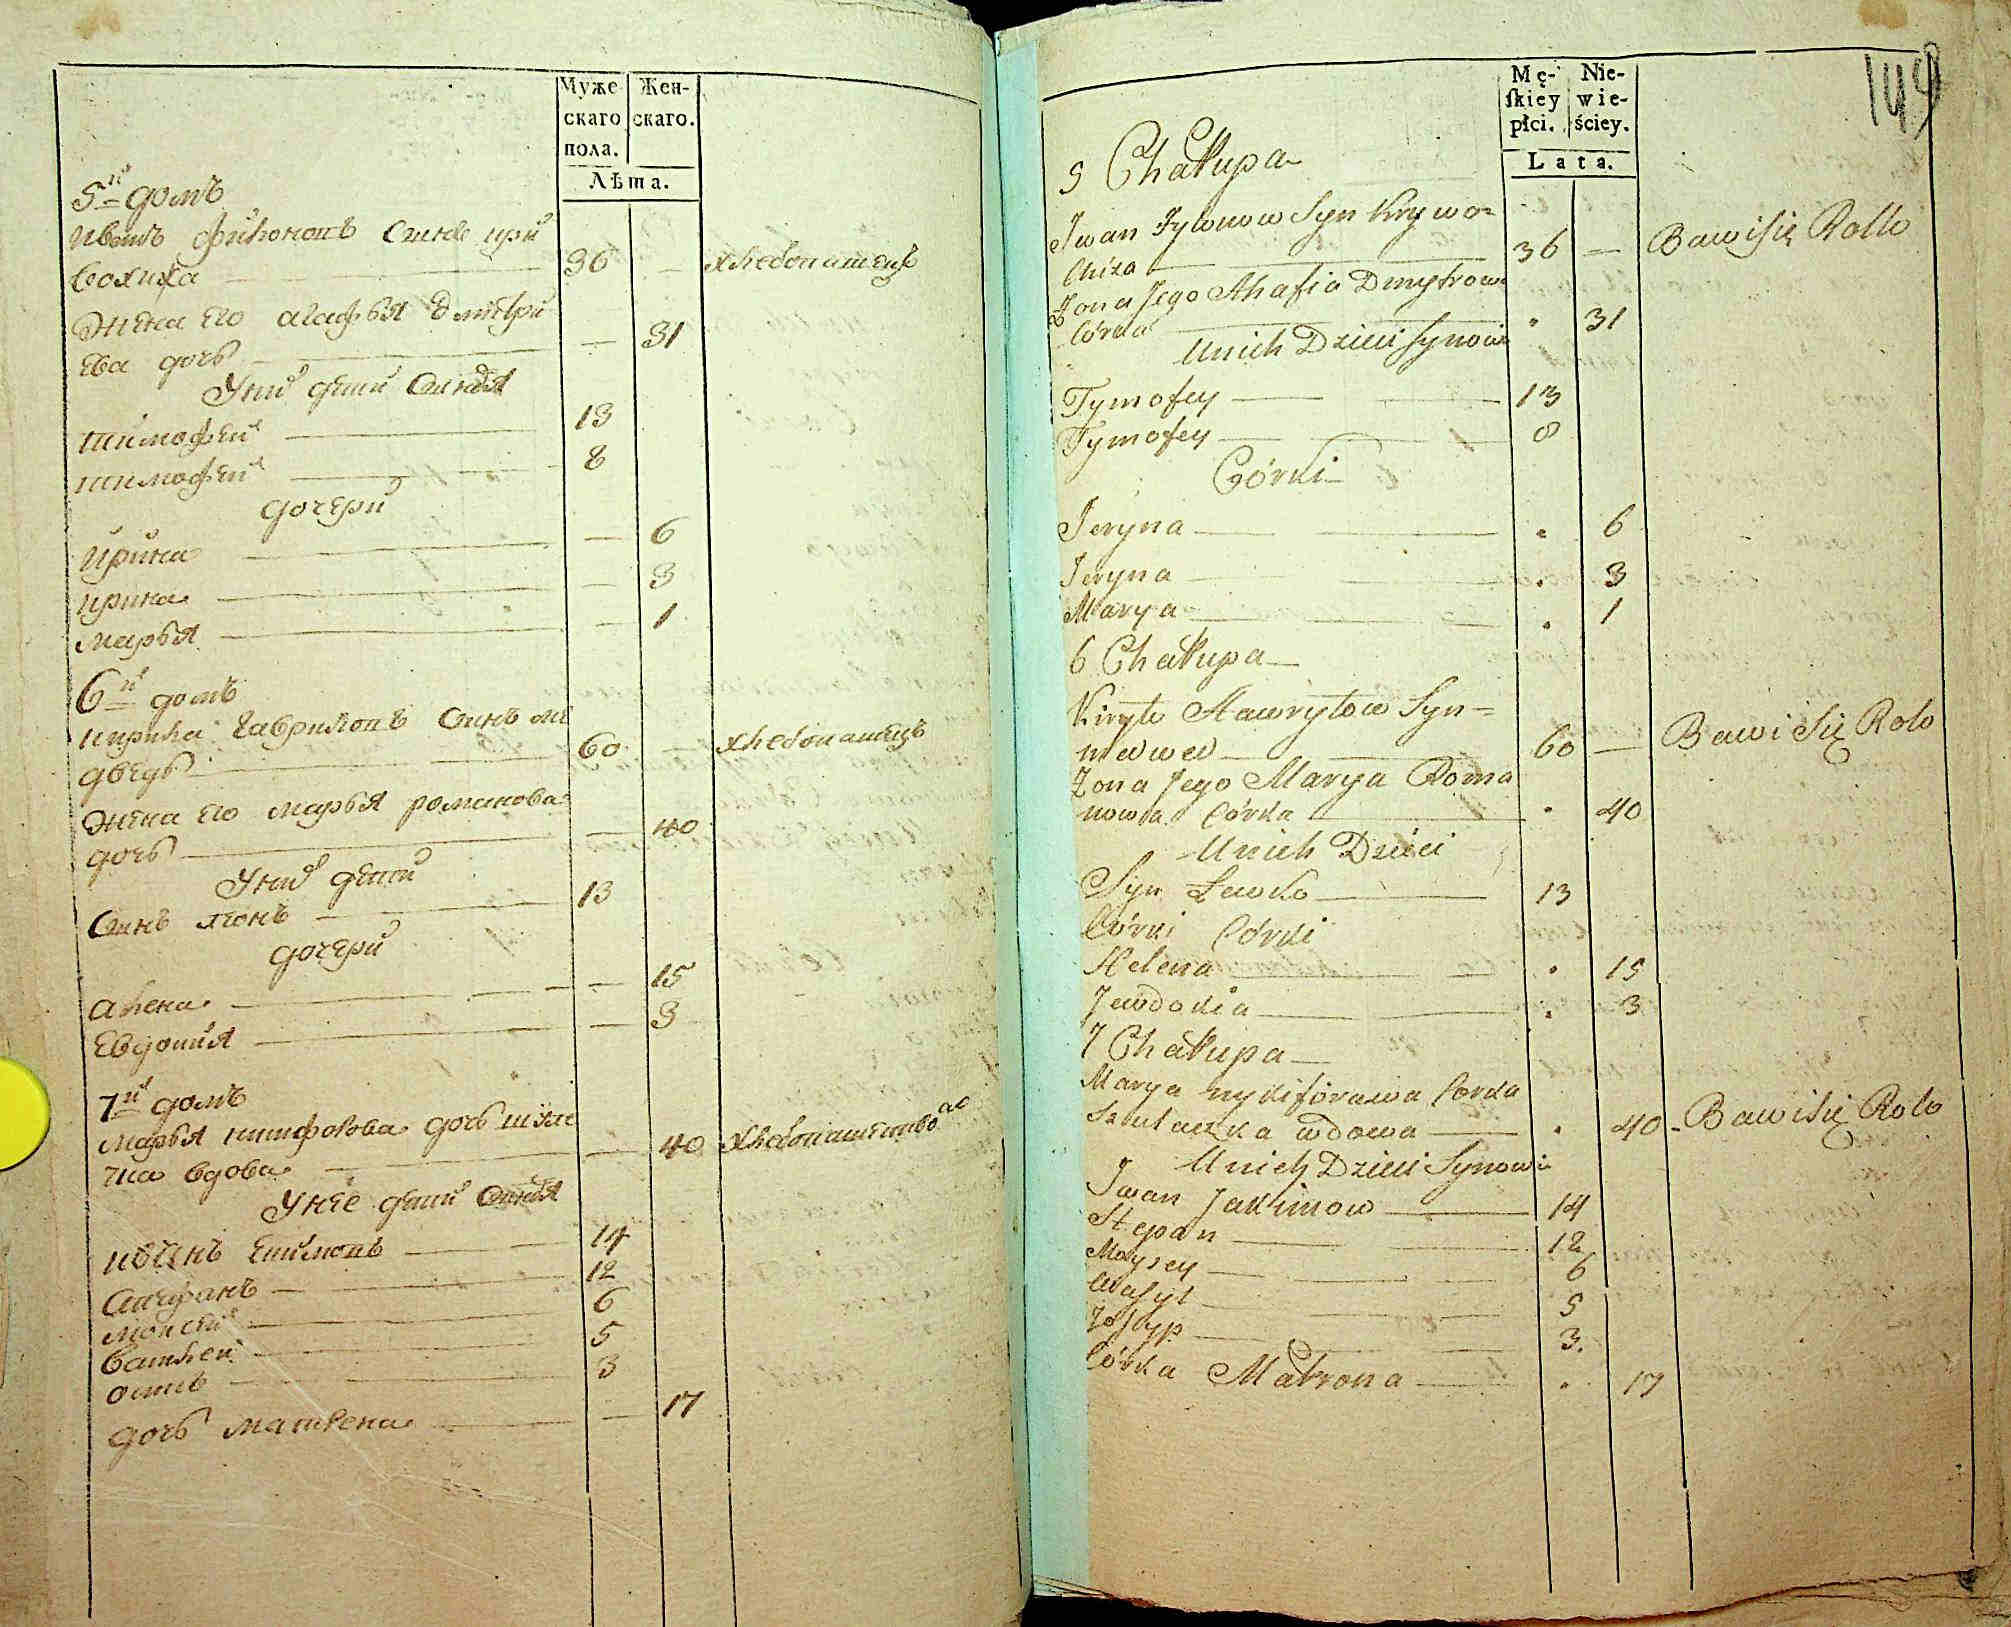 Муже
скаго
пола.
Жен-
скаго.
Лѣта.
5й домъ
Иванъ филоновъ сынъ кри
вохижа 36 — хлебопашецъ
жена его агафья дмитри
ева дочь — 31
У них дети сыновья
тимофей 13
тимофей 8
дочери
ирина — 6
ирина — 3
марья — 1
6й домъ
кирила гавриловъ сынъ ме
дведь 60 — хлебопашецъ
жена его марья романова
дочь — 40
У них дети
сынъ леонъ 13
дочери
алена — 15
Евдокия — 3
7й домъ
марья никифорова дочь шуля
чка вдова — 40 хлебопашество
У нее дети сыновья
Иванъ Екимовъ 14
Стефанъ 12
моисей 6
василей 5
осипъ 3
дочь матрена — 17
149
Mę-
ſkiey
płci.
Nie-
wie-
ściey.
Lata.
5 Chałupa
Jwan Fylonow Syn Krywo=
Chiza 36 — Bawi się Rollo
Żona Jego Ahafia Dmytrowa
Córka " 31
U nich Dzieci Synowie
Tymofey 13
Tymofey 8
Córki
Jeryna " 6
Jeryna " 3
Marya " 1
6 Chałupa
Kiryło Hawryłow Syn=
medwed 60 — Bawi Się Rolo
Żona Jego Marya Roma
nowa Córka " 40
U nich Dzieci
Syn Lewko 13
Córki Córki
Helena " 15
Jewdokia " 3
7 Chałupa
Marya nykiforowa Corka
Szulaczka wdowa " 40 - Bawi się Rolo
U nich Dzieci Synowie
Jwan Jakimow 14
Stepan 12
Moysey 6
Wasyl 5
Josyp 3.
Córka Matrona " 17